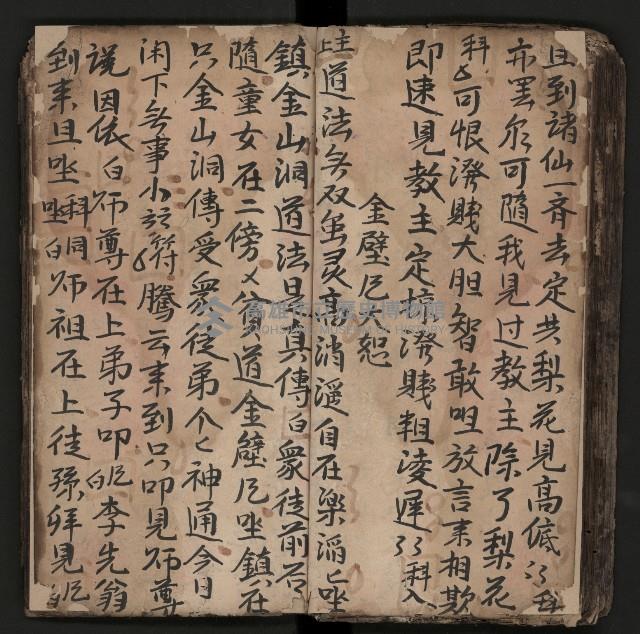 且到諸仙一齊去定共梨花見高低シシ科
亦罢尔可隨我見过教主除了梨花
科ㄥ可恨潑賎大胆智敢呾放言来相欺
即速見教主定擒潑賎粗凌遲シシ科入
金璧尼恕
主上道法無双虽灵高消遥自在楽滔ㄥ坐
鎮金山洞道法是具傳白衆徒前后
隨童女在二傍乂貧道金壁尼坐鎮在
只金山洞傳受衆徒弟个ㄥ神通今日
闲下無事小符騰云来到只叩見师尊
説因依白师尊在上弟子叩尼白李先翁
到来且坐科坐同白师祖在上徒孫拜見尼
高雄市立歷史博物館
KAOHSIUNG MUSEUM OF HISTORY